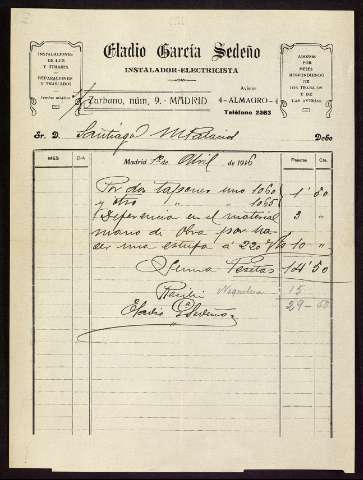 INSTALACIONES
DE LUZ
Y TIMBRES
REPARACIONES
Y TRASLADOS
Eladio García Sedeño
INSTALADOR-ELECTRICISTA
Zurbano, núm. 9.-MADRID
Avisos:
4-ALMAGRO-4
Teléfono 2363
ABONOS
POR
MESES
RESPONDIENDO
DE
LOS TRABAJOS
Y DE
LAS AVERÍAS
Sr. D. Santiago M. Palacios Debe
MES DIA Madrid 1º de Abril de 1916 Pesetas Cts.
Por dos tapones uno 1060 1'50
y otro " " 1060
Diferencia en el material 3 "
mano de obra por ha-
cer una estufa á 220 10 "
Suma Pesetas 14'50
Recibí 15
29-50
Eladio G. Sedeño